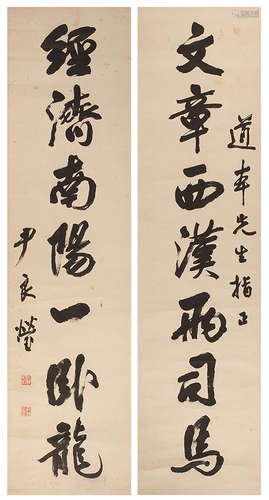 文章西漢兩司馬
道奉先生指正
經濟南陽一卧龍
尹良瑩